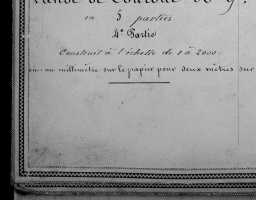 en 5 parties
4e Partie
Construit à l'échelle de 1 à 2000.
un millimètre sur le papier pour deux mètres sur